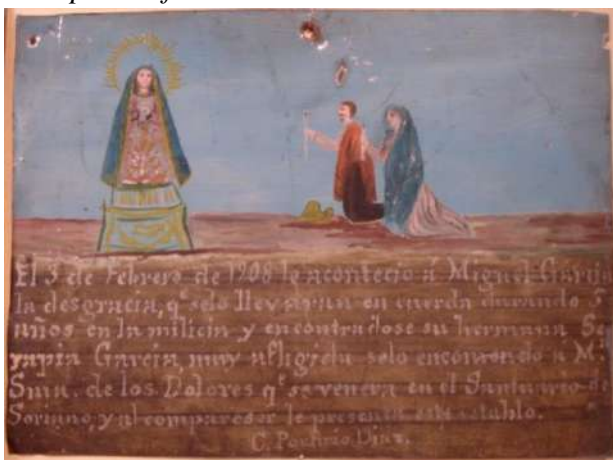 El 3 de Febrero de 1908 le acontecio á Miguel Garcia
la desgracia, qe. se lo llevaran en cuerda durando
años en la milicia y encontradose su hermana Se
rapia Garcia, muy afligida selo encomendo á Mª.
Sma. de los Dolores qe. se venera en el Santuario de
Soriano, y al comparecer le presenta este retablo.
C. Porfirio Diaz.